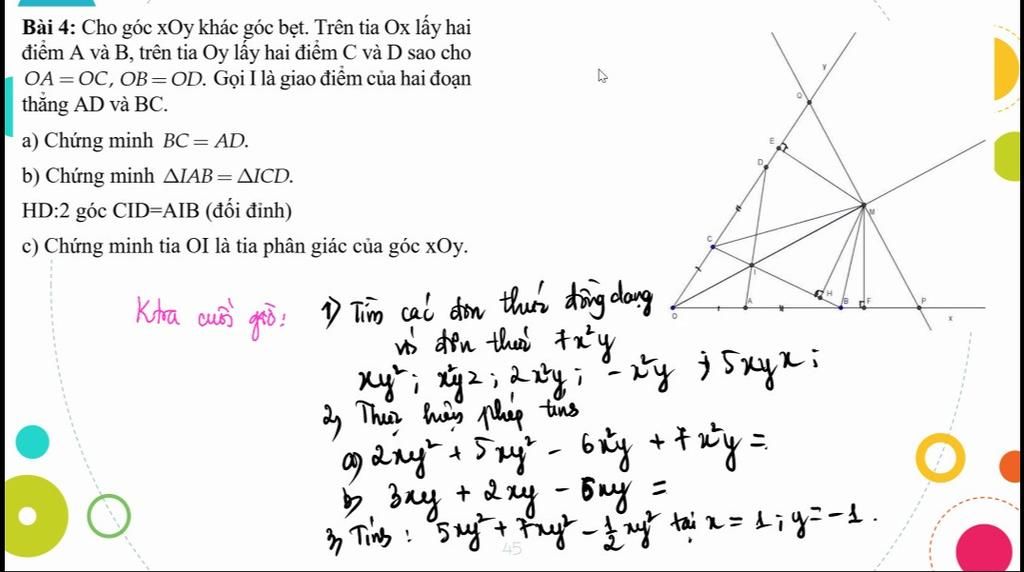 Bài 4: Cho góc xOy khác góc bẹt. Trên tia Ox lấy hai
điểm A và B, trên tia Oy lấy hai điểm C và D sao cho
OA = OC, OB = OD. Gọi I là giao điểm của hai đoạn
thẳng AD và BC.
a) Chứng minh BC = AD.
b) Chứng minh ΔIAB = ΔICD.
HD:2 góc CID=AIB (đối đỉnh)
c) Chứng minh tia OI là tia phân giác của góc xOy.
y
Q
E
D
M
C
I
H
O
A
B
F
P
x
Ktra cuối giờ:
1) Tìm các đơn thức đồng dạng
với đơn thức 7x²y
xy²; x²yz; 2x²y; -x²y; 5xyx;
2) Thực hiện phép tính
a) 2xy² + 5xy² - 6x²y + 7x²y =
b) 3xy + 2xy - 5xy =
3) Tính: 5xy² + 7xy² - 1/2 xy² tại x = 1; y = -1.
45